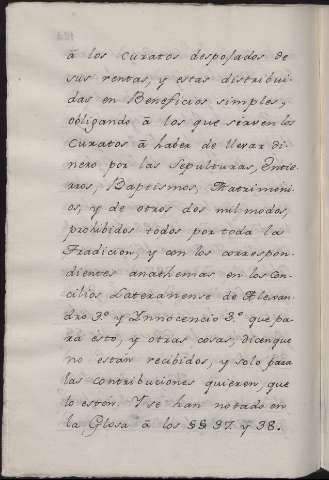 â los Curatos despojados de
sus rentas, y estas distribui-
das en Beneficios simples,
obligando â los que sirven los
Curatos â haber de llevar di-
nero por las sepulturas, Entie-
rros, Baptismos, Matrimoni-
os, y de otros dos mil modos,
prohibidos todos por toda la
Tradicion, y con los correspon-
dientes anathemas en los Con-
cilios Lateranense de Alexan-
dro 3.º y Ynnocencio 3.º que pa-
ra esto, y otras cosas, dicen que
no estan recibidos, y solo para
las contribuciones quieren, que
lo esten. Y se han notado en
la Glosa â los §§ 37. y 38.